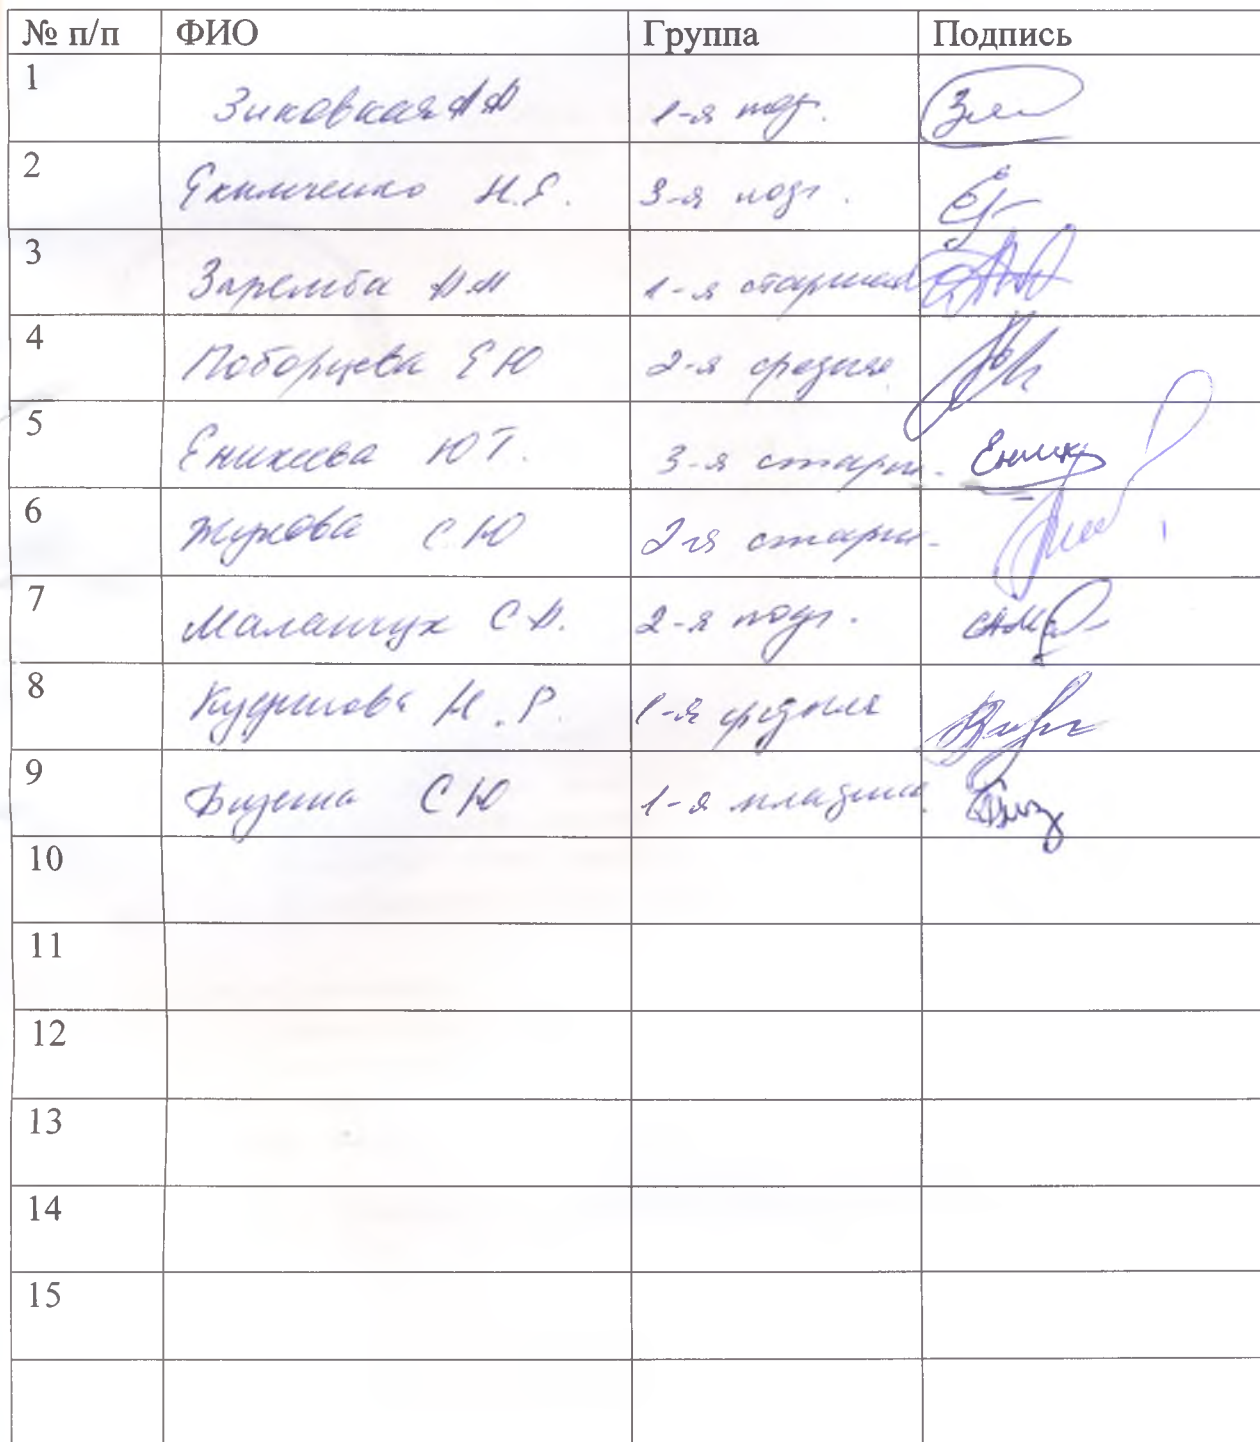 № п/п ФИО Группа Подпись
1 Зиковская А А 1-я под.
2 Екимченко Н.Е. 3-я подг.
3 Заремба А М 1-я старшая
4 Поборцева Е Ю 2-я средняя
5 Еникеева Ю Т. 3-я старш. Еник
6 Жукова С Ю 2-я старш.
7 Маланчук С А. 2-я подг.
8 Н. Р. 1-я средняя
9 С Ю 1-я младшая
10
11
12
13
14
15